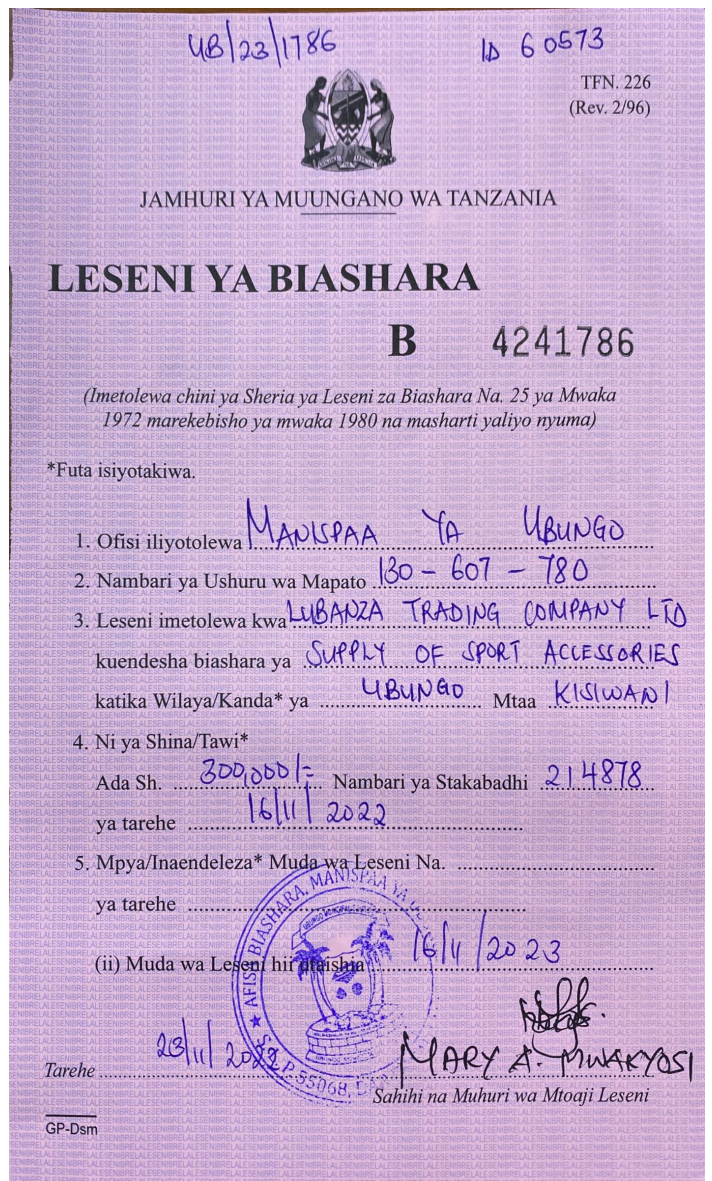 UB/23/1786
ID 60573
TFN. 226
(Rev. 2/96)
JAMHURI YA MUUNGANO WA TANZANIA
LESENI YA BIASHARA
B 4241786
(Imetolewa chini ya Sheria ya Leseni za Biashara Na. 25 ya Mwaka
1972 marekebisho ya mwaka 1980 na masharti yaliyo nyuma)
*Futa isiyotakiwa.
1. Ofisi iliyotolewa MANISPAA YA UBUNGO
2. Nambari ya Ushuru wa Mapato 130 - 607 - 780
3. Leseni imetolewa kwa LUBANZA TRADING COMPANY LTD
kuendesha biashara ya SUPPLY OF SPORT ACCESSORIES
katika Wilaya/Kanda* ya UBUNGO Mtaa KISIWANI
4. Ni ya Shina/Tawi*
Ada Sh. 300,000/= Nambari ya Stakabadhi 214878
ya tarehe 16/11/2022
5. Mpya/Inaendeleza* Muda wa Leseni Na.
ya tarehe
(ii) Muda wa Leseni hii utaishia 16/11/2023
AFISA BIASHARA, MANISPAA YA
S.L.P. 55068,
Tarehe 23/11/2022
MARY A. MWAKYOSI
Sahihi na Muhuri wa Mtoaji Leseni
GP-Dsm